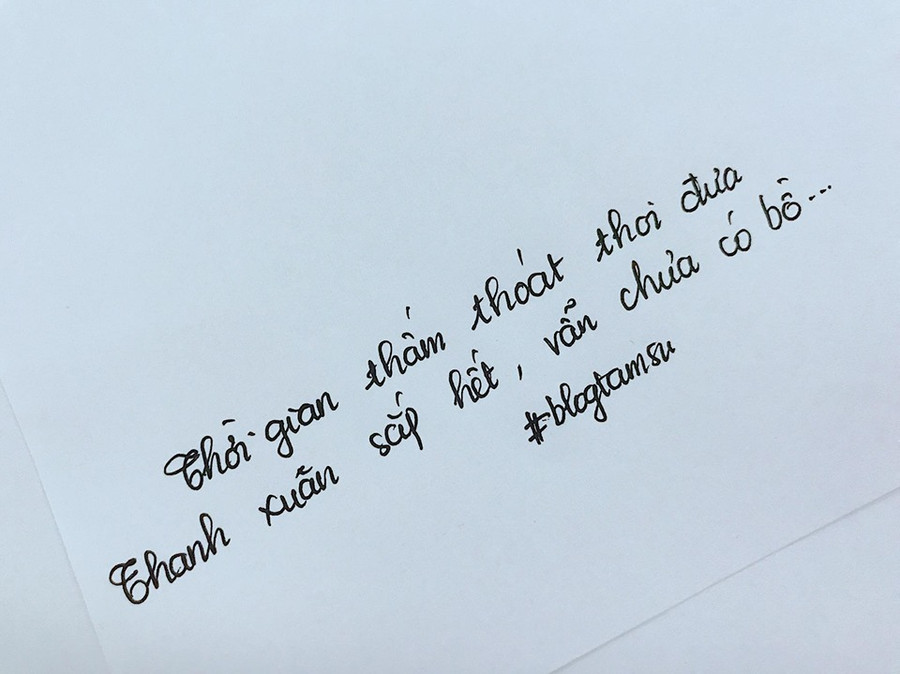 Thời gian thấm thoát thoi đưa
Thanh xuân sắp hết, vẫn chưa có bồ...
#blogtamsu